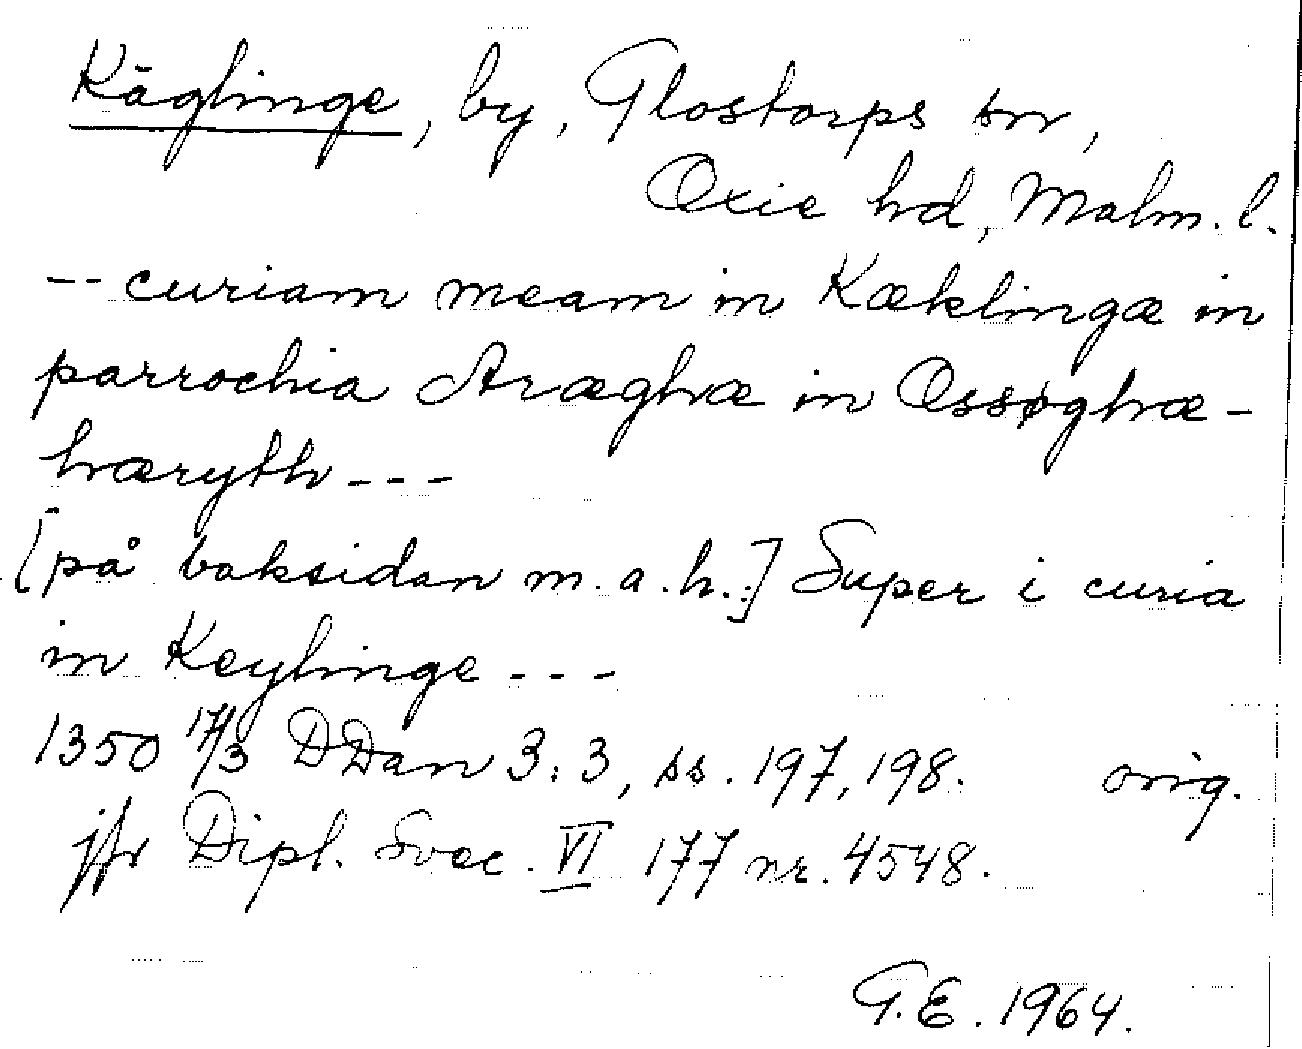 Käglinge, by, Glostorps sn,
Oxie hd, Malm. l.
-- curiam meam in Kæklingæ in
parrochia Aræghræ in Ossøghræ-
hæryth ---
[på baksidan m. a. h.:] Super i curia
in Keylinge ---
1350 17/3 DDan 3:3, ss. 197, 198. orig.
jfr Dipl. Svec. VI 177 nr. 4548.
G.E. 1964.